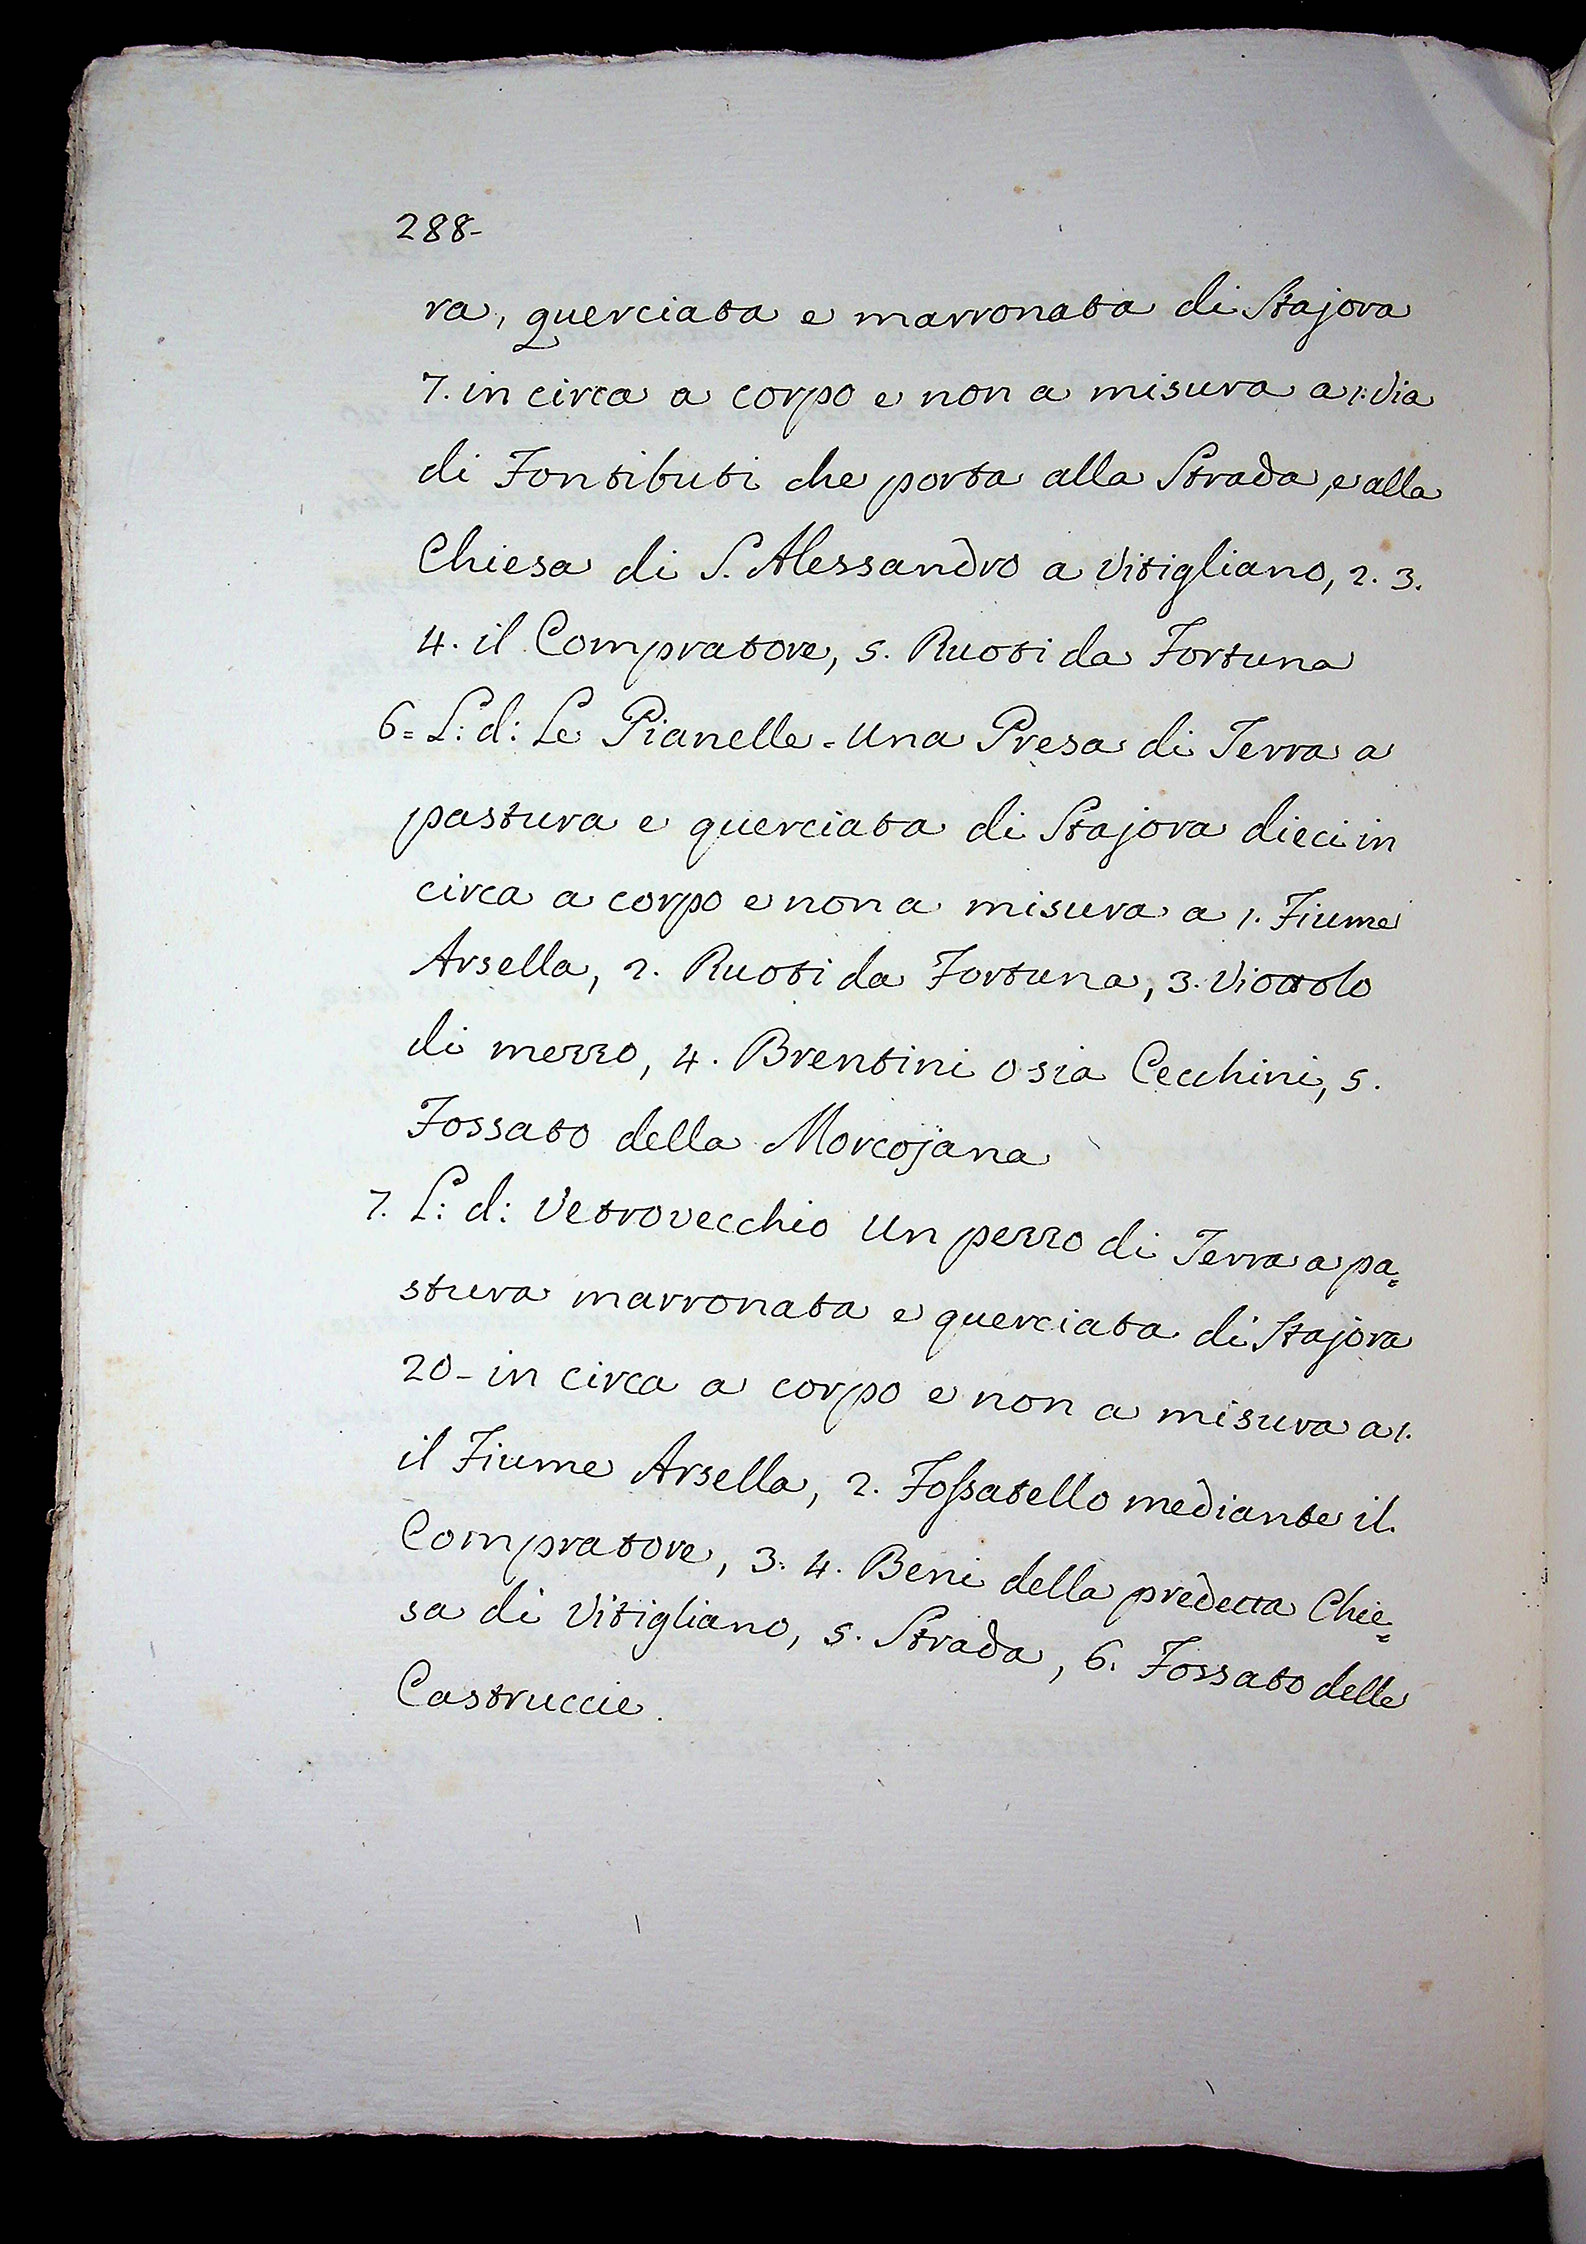 288-
ra, querciata e marronata di Stajora
7. in circa a corpo e non a misura a 1: Via
di Fontibuti che porta alla Strada, e alla
Chiesa di S. Alessandro a Vitigliano, 2. 3.
4. il Compratore, 5. Ruoti da Fortuna
6= L: d: Le Pianelle - Una Presa di Terra a
pastura e querciata di Stajora dieci in
circa a corpo e non a misura a 1. Fiume
Arsella, 2. Ruoti da Fortuna, 3. Viottolo
di mezzo, 4. Brentini o sia Cecchini, 5.
Fossato della Morcojana
7. L: d: Vetrovecchio Un pezzo di Terra a pa=
stura marronata e querciata di Stajora
20- in circa a corpo e non a misura a 1.
il Fiume Arsella, 2. Foſsatello mediante il
Compratore, 3. 4. Beni della predetta Chie=
sa di Vitigliano, 5. Strada, 6. Fossato delle
Castruccie.